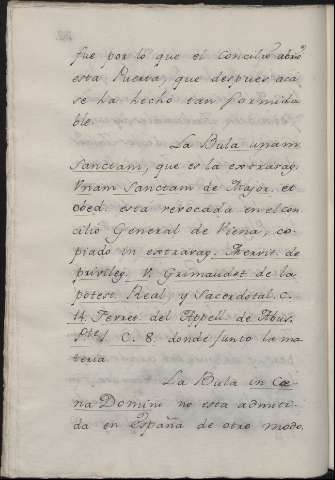 fue por lo que el Concilio abrio
esta Puerta, que despues acá
se ha hecho tan formida
ble.
La Bula unam
Sanctam, que es la extravag.
Unam Sanctam de Major. et
obed. esta revocada en el con
cilio General de Viena, co-
piado in extravag. Meruit. de
privileg. V. Grimaudet de la
potest. Real y Sacerdotal. c.
14. Ferret. del Appell. de Abus.
Pte 1. C. 8. donde junto la ma
teria
La Bula in Cœ
na Domini no esta admiti-
da en España de otro modo,